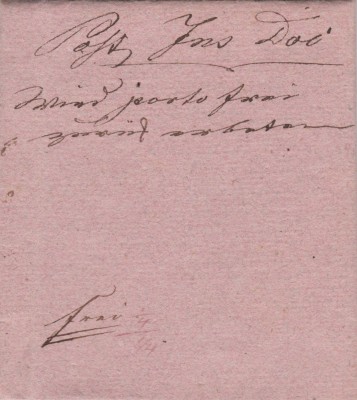 Post Ins Doc
Wird porto frei
zurük erbeten
frei 4/4